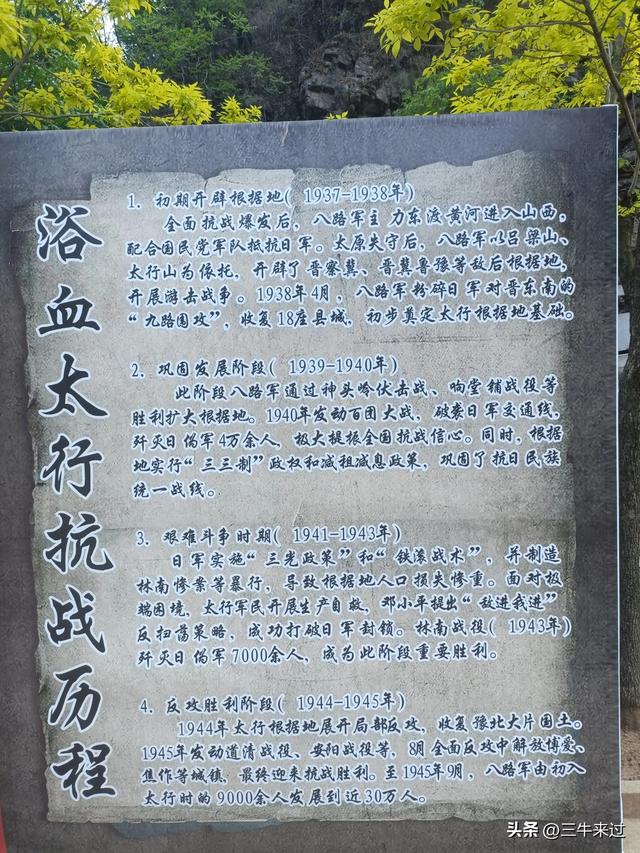 浴血太行抗战历程
1. 初期开辟根据地( 1937-1938年)
全面抗战爆发后，八路军主 力东渡黄河进入山西，
配合国民党军队抵抗日军。太原失守后，八路军以吕梁山、
太行山为依托，开辟了晋察冀、晋冀鲁豫等敌后根据地，
开展游击战争。1938年4月，八路军粉碎日军对晋东南的
“九路围攻”，收复18座县城，初步奠定太行根据地基础。
2. 巩固发展阶段( 1939-1940年)
此阶段八路军通过神头岭伏击战、响堂铺战役等
胜利扩大根据地。1940年发动百团大战，破袭日军交通线，
歼灭日伪军4万余人，极大提振全国抗战信心。同时，根据
地实行“三三制”政权和减租减息政策，巩固了抗日民族
统一战线。
3. 艰难斗争时期( 1941-1943年)
日军实施“三光政策”和“铁滚战术”，并制造
林南惨案等暴行，导致根据地人口损失惨重。面对极
端困境，太行军民开展生产自救，邓小平提出“敌进我进”
反扫荡策略，成功打破日军封锁。林南战役( 1943年)
歼灭日伪军7000余人，成为此阶段重要胜利。
4. 反攻胜利阶段( 1944-1945年)
1944年太行根据地展开局部反攻，收复豫北大片国土。
1945年发动道清战役、安阳战役等，8月全面反攻中解放博爱、
焦作等城镇，最终迎来抗战胜利。至1945年9月，八路军由初入
太行时的9000余人发展到近30万人。
头条 @三牛来过